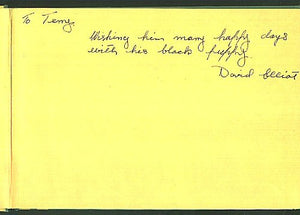 To Terry
Wishing him many happy days
with his black puppy.
David Elliot